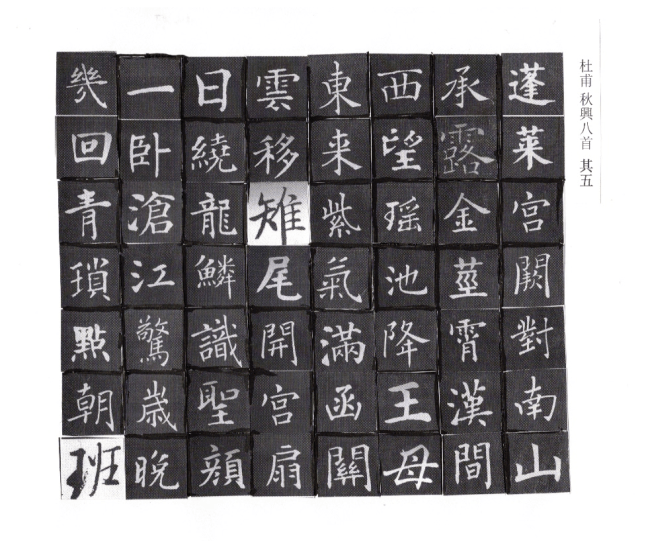 杜甫 秋興八首 其五
蓬萊宮闕對南山
承露金莖霄漢間
西望瑶池降王母
東来紫氣滿函關
雲移雉尾開宮扇
日繞龍鱗識聖顏
一卧滄江驚歲晚
幾回青瑣點朝班